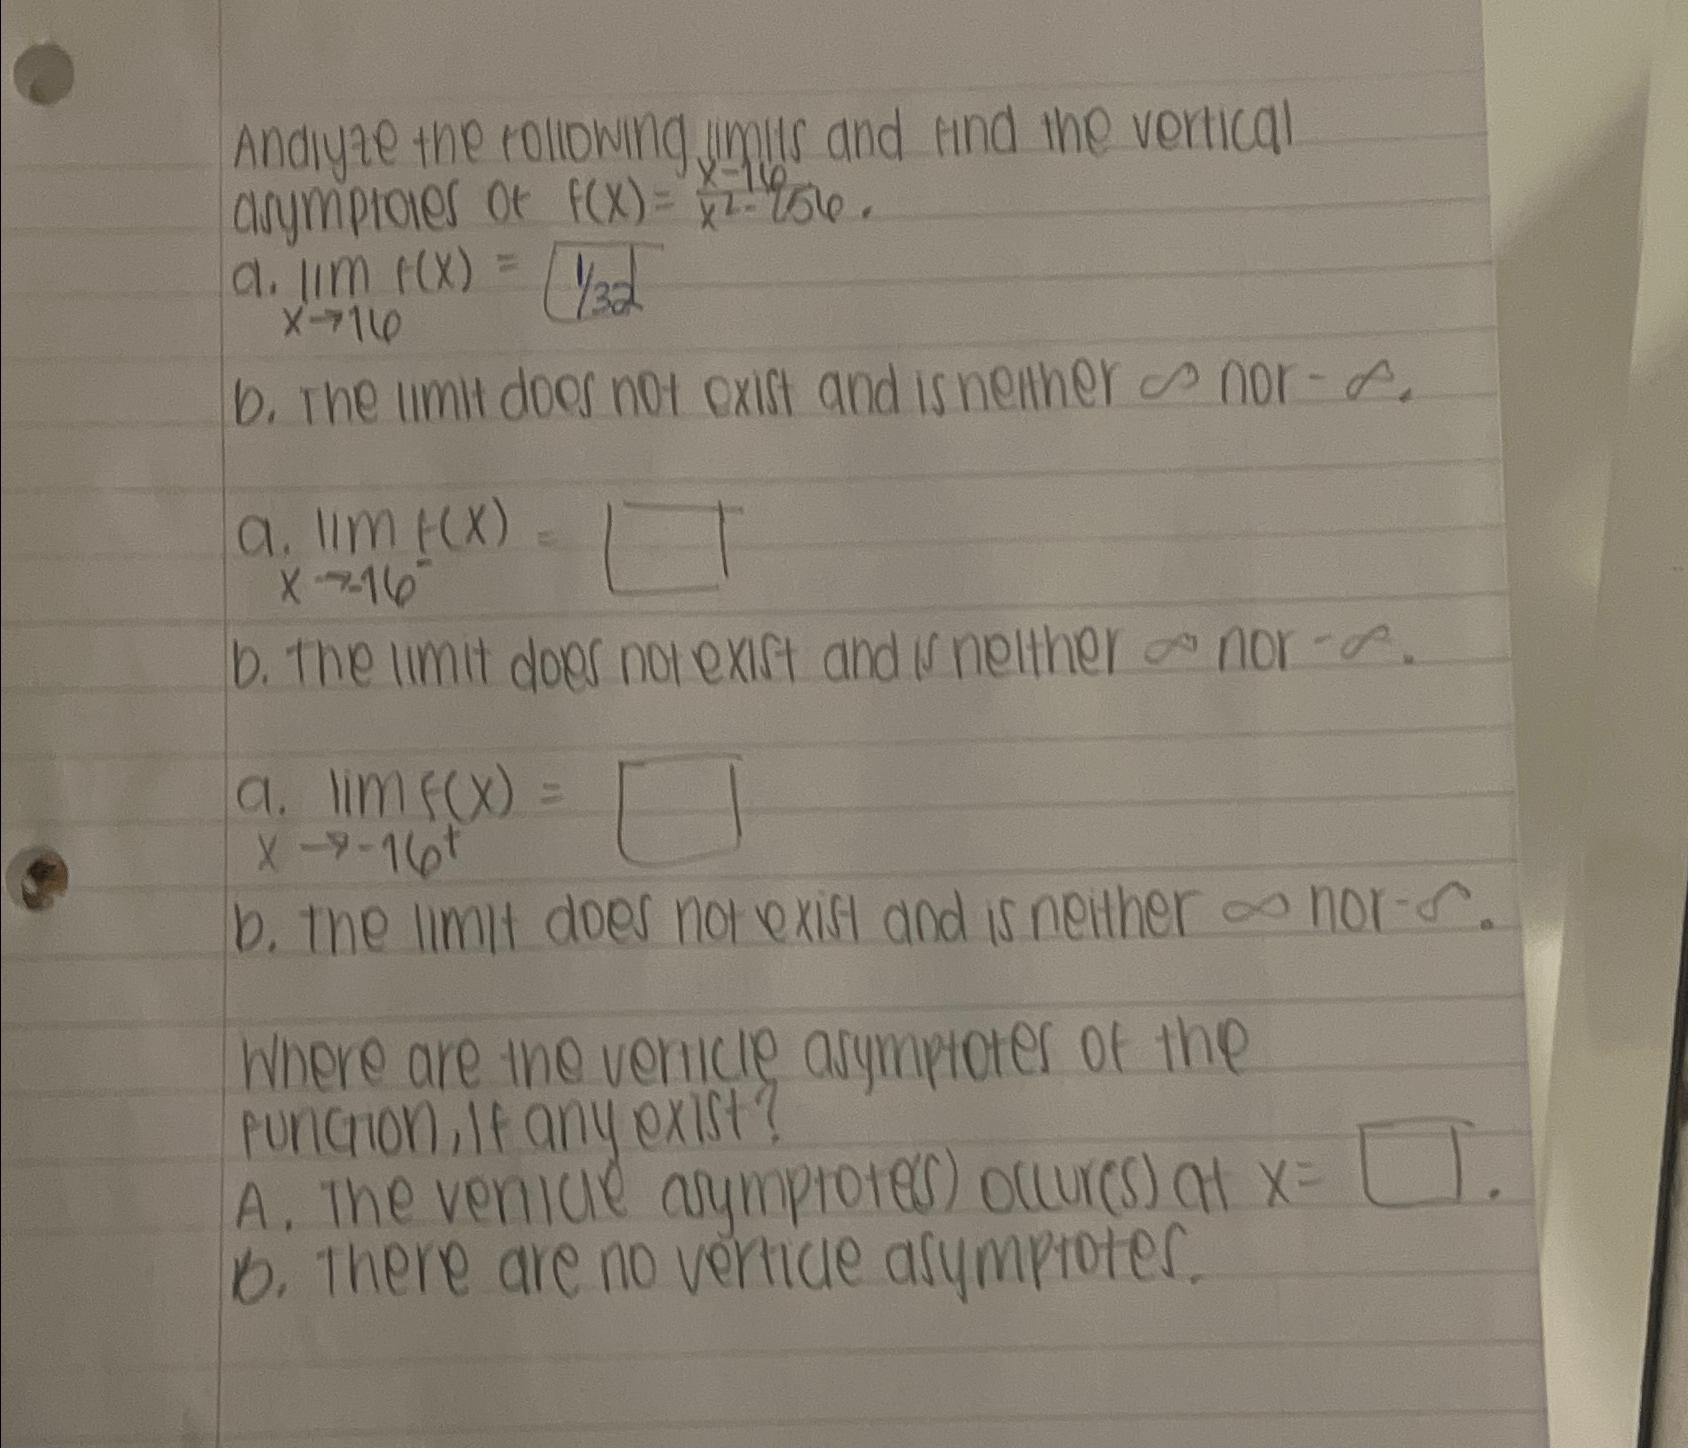 Analyze the following limits and find the vertical
asymptotes of f(x) = x-16/x²-256.
a. lim f(x) = 1/32
x→16
b. The limit does not exist and is neither ∞ nor -∞.
a. lim f(x) =
x→-16⁻
b. The limit does not exist and is neither ∞ nor -∞.
a. lim f(x) =
x→-16⁺
b. The limit does not exist and is neither ∞ nor -∞.
Where are the verticle asymptotes of the
function, if any exist?
A. The verticle asymptote(s) occur(s) at x= .
b. There are no verticle asymptotes.